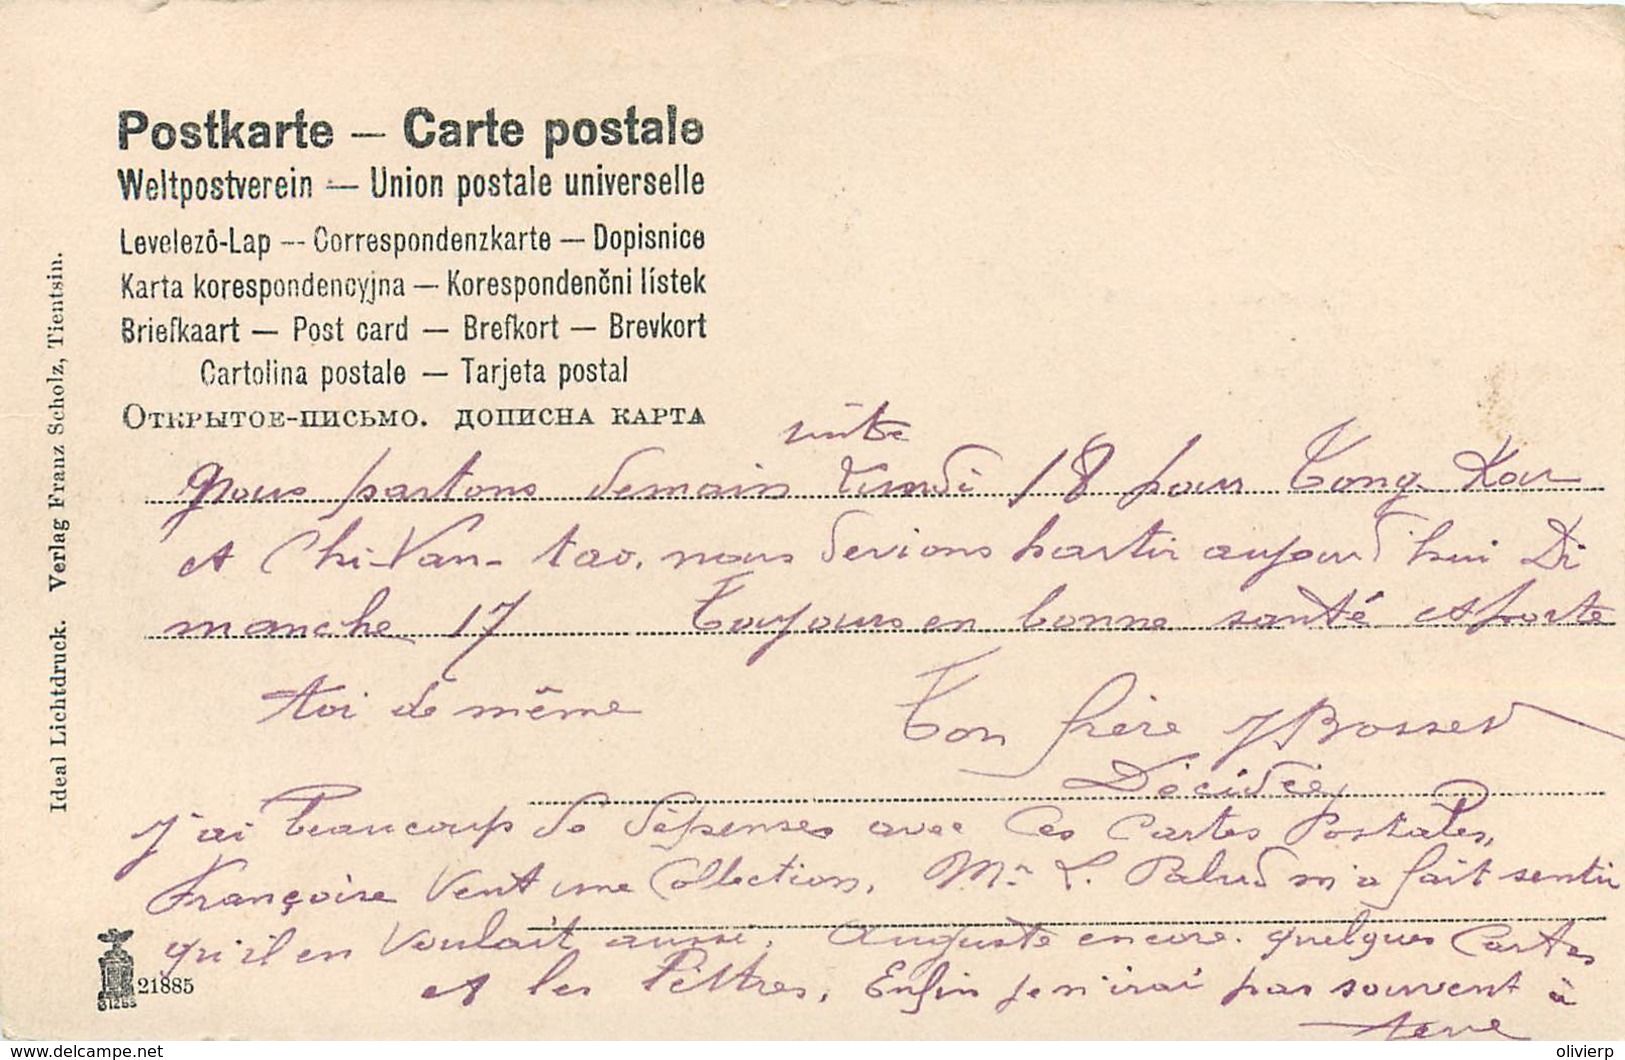 Postkarte — Carte postale
Weltpostverein — Union postale universelle
Levelezŏ-Lap — Correspondenzkarte — Dopisnice
Karta korespondencyjna — Korespondenčni lístek
Briefkaart — Post card — Brefkort — Brevkort
Cartolina postale — Tarjeta postal
Открытое-письмо. дописна карта
Ideal Lichtdruck. Verlag Franz Scholz, Tientsin.
suite
Nous partons demain Lundi 18 pour Tong Kou
et Chi-Van-tao. nous devions partir aujourd'hui Di
manche 17 Toujours en bonne santé et porte
toi de même
Ton frère J Bosset
Décidée
J'ai beaucoup de dépenses avec les Cartes Postales,
Françoise Veut une Collection, Mr L. Palud m'a fait sentir
qu'il en Voulait aussi, Auguste encore. quelques Cartes
et les lettres, Enfin je n'irai pas souvent à
terre
21885
olivierp
www.delcampe.net